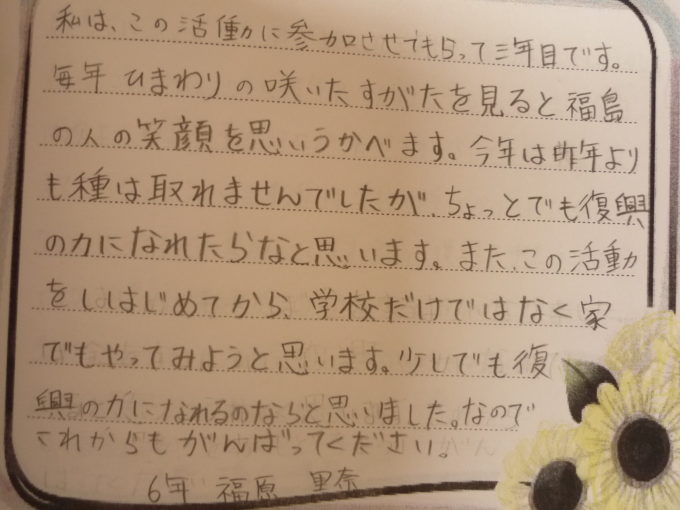 私は、この活動に参加させてもらって三年目です。
毎年ひまわりの咲いたすがたを見ると福島
の人の笑顔を思いうかべます。今年は昨年より
も種は取れませんでしたが、ちょっとでも復興
の力になれたらなと思います。また、この活動
をしはじめてから、学校だけではなく家
でもやってみようと思います。少しでも復
興の力になれるのならと思いました。なので
これからもがんばってください。
6年 福原 里奈